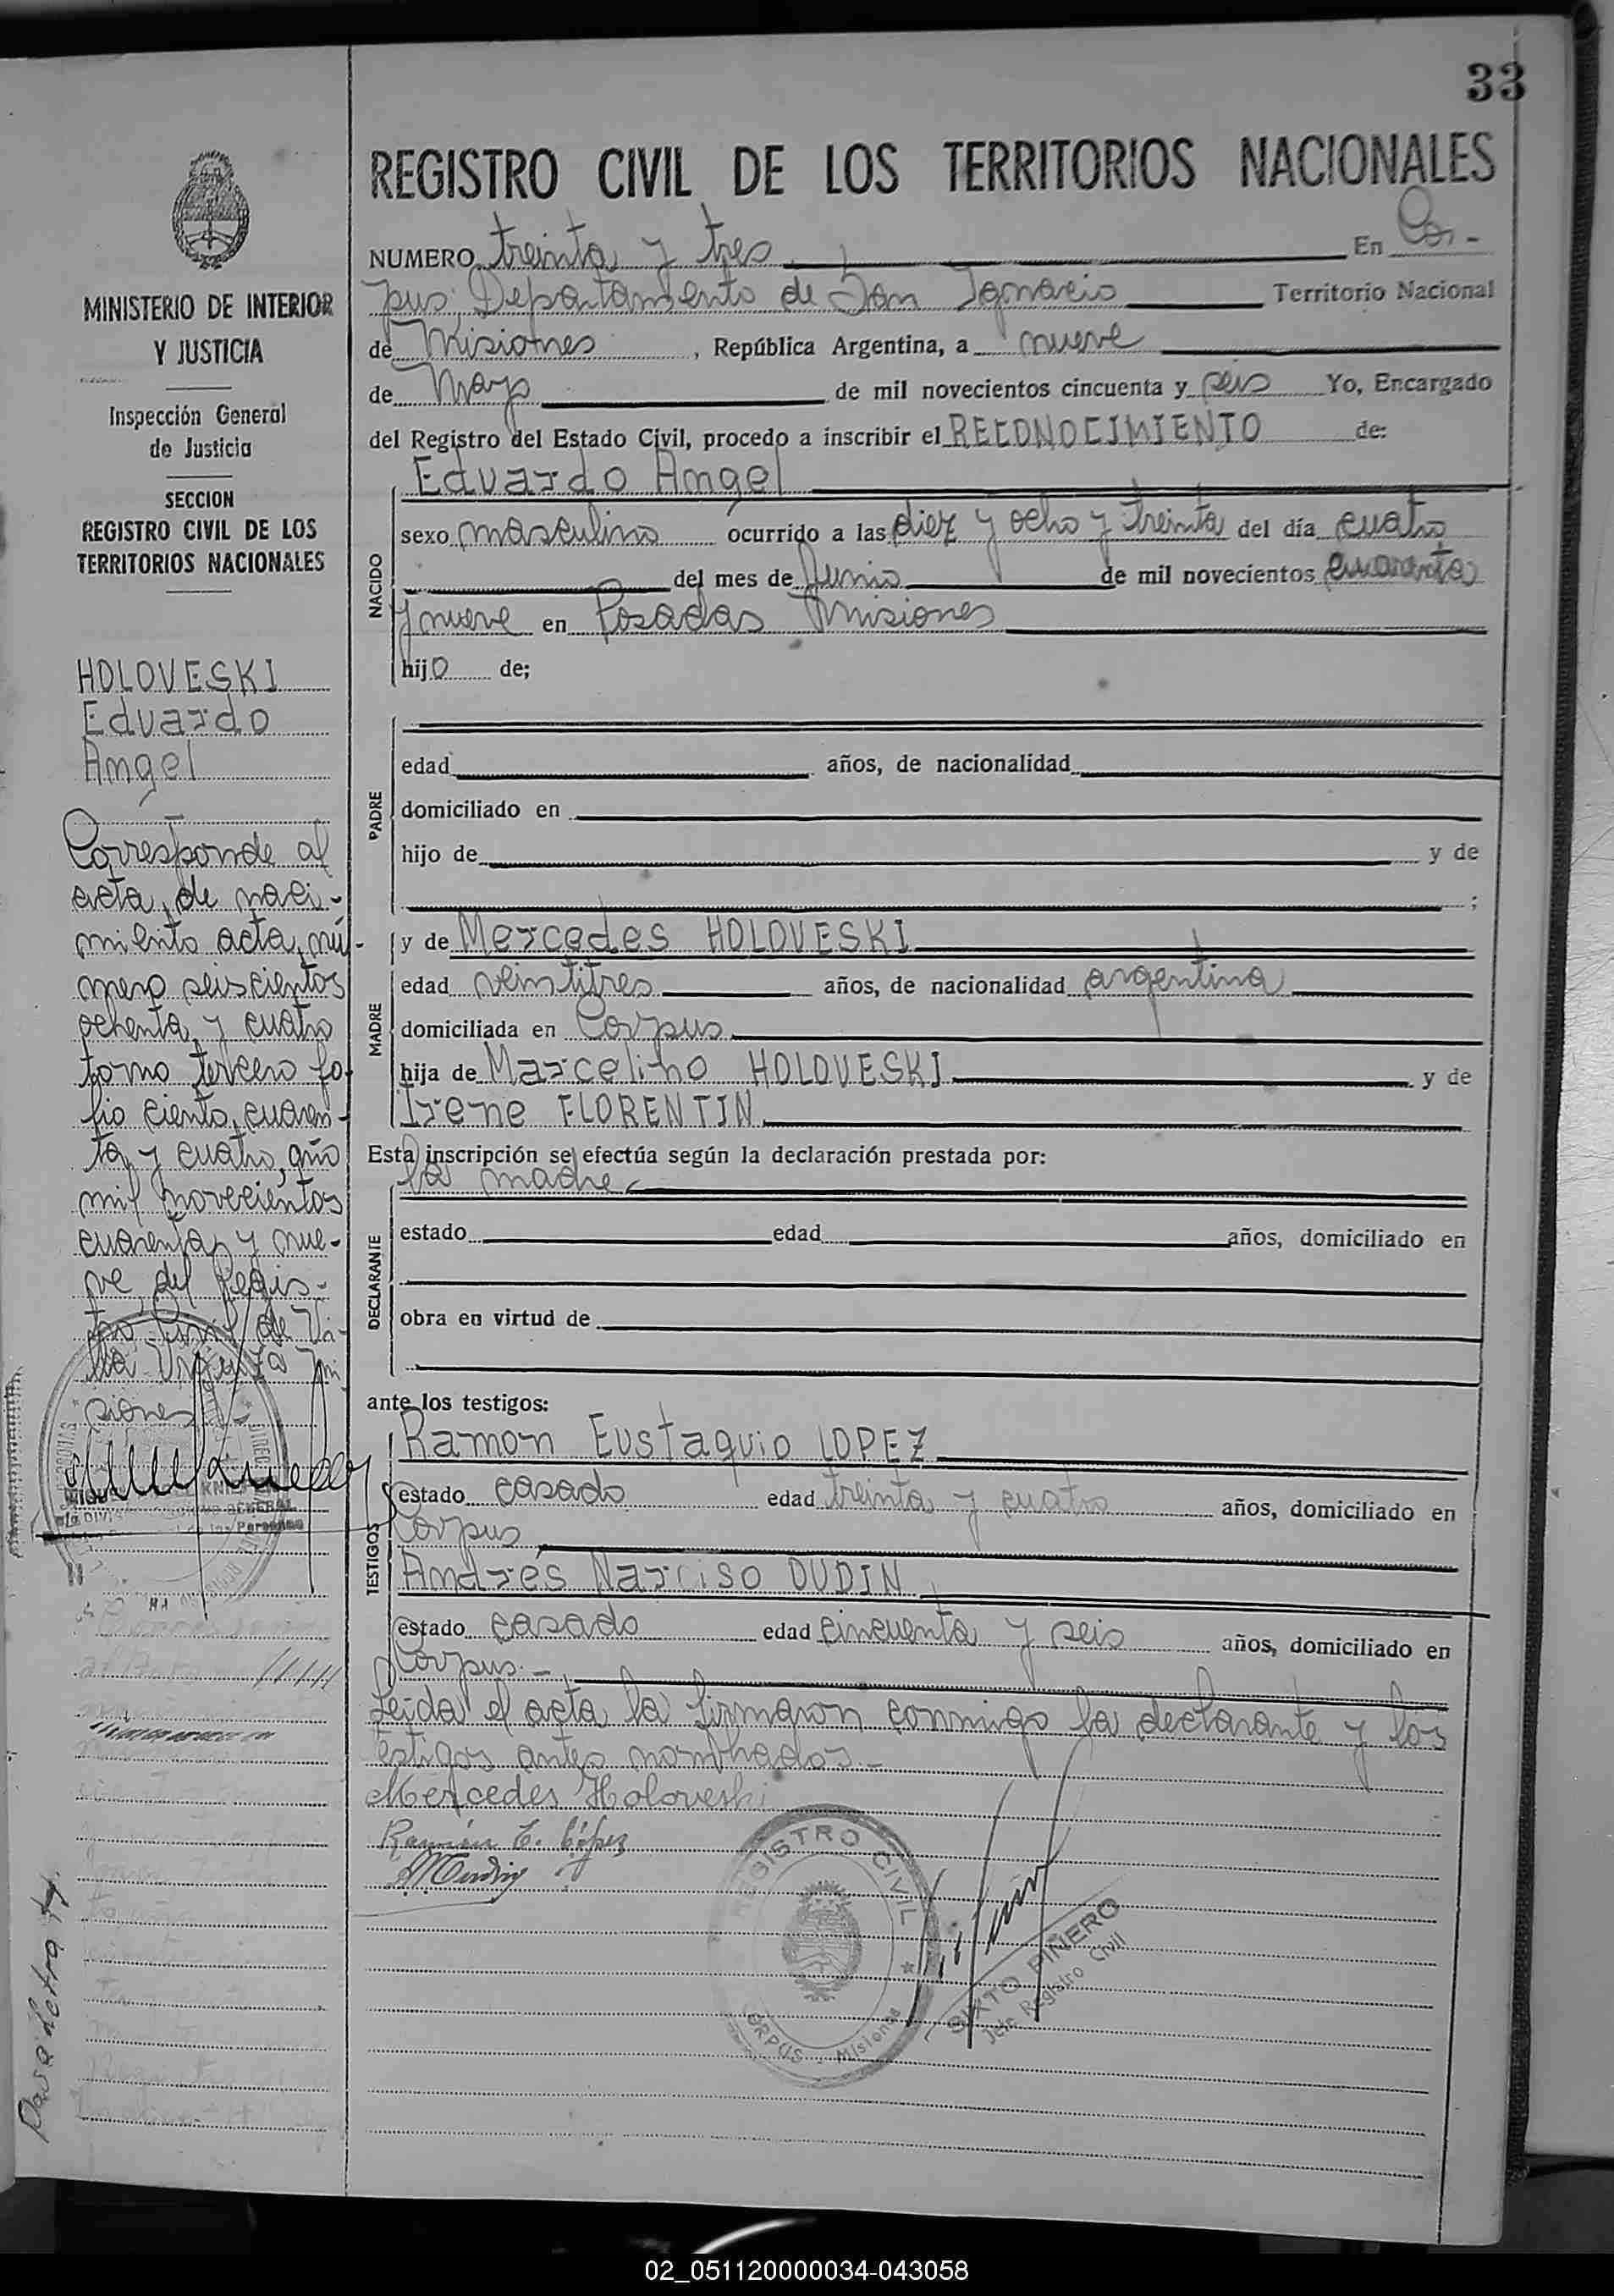 33
REGISTRO CIVIL DE LOS TERRITORIOS NACIONALES
NUMERO treinta y tres En Cor-
pus Departamento de San Ignacio Territorio Nacional
de Misiones, República Argentina, a nueve
de Mayo de mil novecientos cincuenta y seis Yo, Encargado
del Registro del Estado Civil, procedo a inscribir el RECONOCIMIENTO de:
Eduardo Angel
NACIDO
sexo masculino ocurrido a las diez y ocho y treinta del día cuatro
del mes de Junio de mil novecientos cuarenta
y nueve en Posadas Misiones
hijo de;
PADRE
edad años, de nacionalidad
domiciliado en
hijo de y de
;
MADRE
y de Mercedes HOLOVESKI
edad veintitres años, de nacionalidad argentina
domiciliada en Corpus
hija de Marcelino HOLOVESKI y de
Irene FLORENTIN
Esta inscripción se efectúa según la declaración prestada por:
la madre
DECLARANTE
estado edad años, domiciliado en
obra en virtud de
ante los testigos:
TESTIGOS
Ramon Eustaquio LOPEZ
estado casado edad treinta y cuatro años, domiciliado en
Corpus
Andrés Narciso DUDIN
estado casado edad cincuenta y seis años, domiciliado en
Corpus.-
Leida el acta la firmaron conmigo la declarante y los
testigos antes nombrados.-
Mercedes Holoveski
Ramón E. López
REGISTRO CIVIL
CORPUS - Misiones
SIXTO PIÑERO
Jefe Registro Civil
MINISTERIO DE INTERIOR
Y JUSTICIA
Inspección General
de Justicia
SECCION
REGISTRO CIVIL DE LOS
TERRITORIOS NACIONALES
HOLOVESKI
Eduardo
Angel
Corresponde al
acta de naci-
miento acta nú-
mero seiscientos
ochenta y cuatro
tomo tercero fo-
lio ciento cuaren-
ta y cuatro, año
mil novecientos
cuarenta y nue-
ve del Regis-
tro Civil de Vi-
lla Urquiza Mi
siones
Pasa letra
02_051120000034-043058